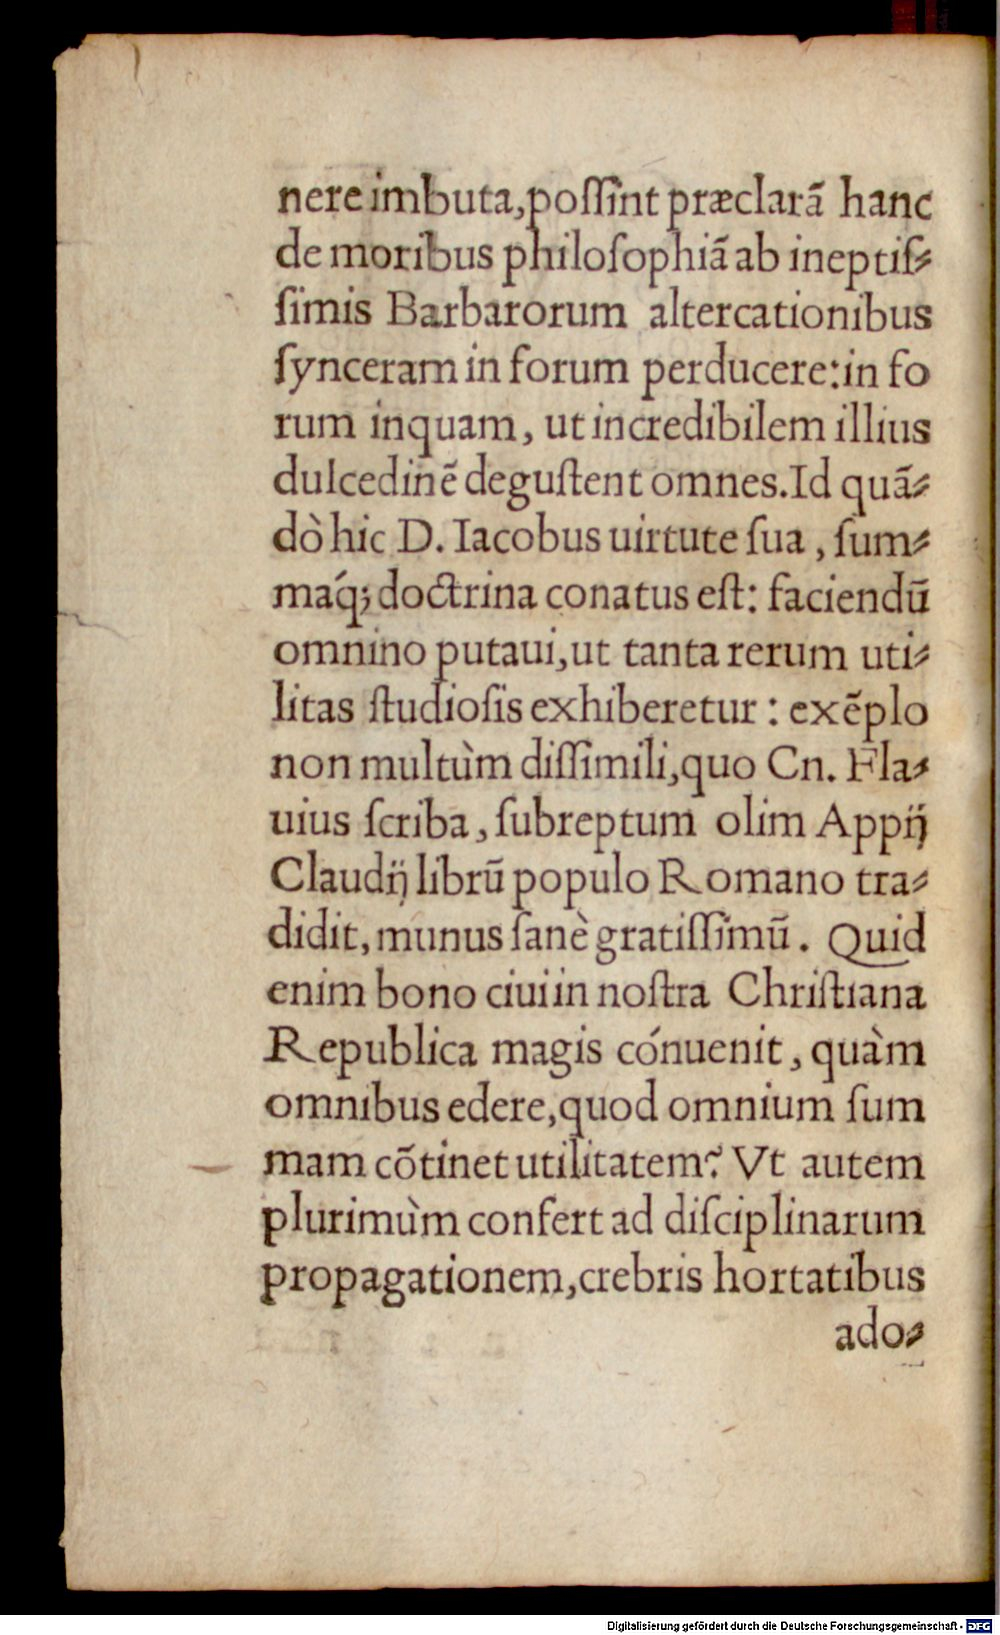 nere imbuta, poſſint præclarã hanc
de moribus philoſophiã ab ineptiſ⸗
ſimis Barbarorum altercationibus
ſynceram in forum perducere: in fo
rum inquam, ut incredibilem illius
dulcedinẽ deguſtent omnes. Id quã⸗
dò hic D. Iacobus uirtute ſua, ſum⸗
máq; doctrina conatus eſt: faciendũ
omnino putaui, ut tanta rerum uti⸗
litas ſtudioſis exhiberetur: exẽplo
non multùm diſſimili, quo Cn. Fla⸗
uius ſcriba, ſubreptum olim Appij
Claudij librũ populo Romano tra⸗
didit, munus ſanè gratiſſimũ. Quid
enim bono ciui in noſtra Chriſtiana
Republica magis cónuenit, quàm
omnibus edere, quod omnium ſum
mam cõtinet utilitatem? Vt autem
plurimùm confert ad diſciplinarum
propagationem, crebris hortatibus
ado⸗
Digitalisierung gefördert durch die Deutsche Forschungsgemeinschaft - DFG